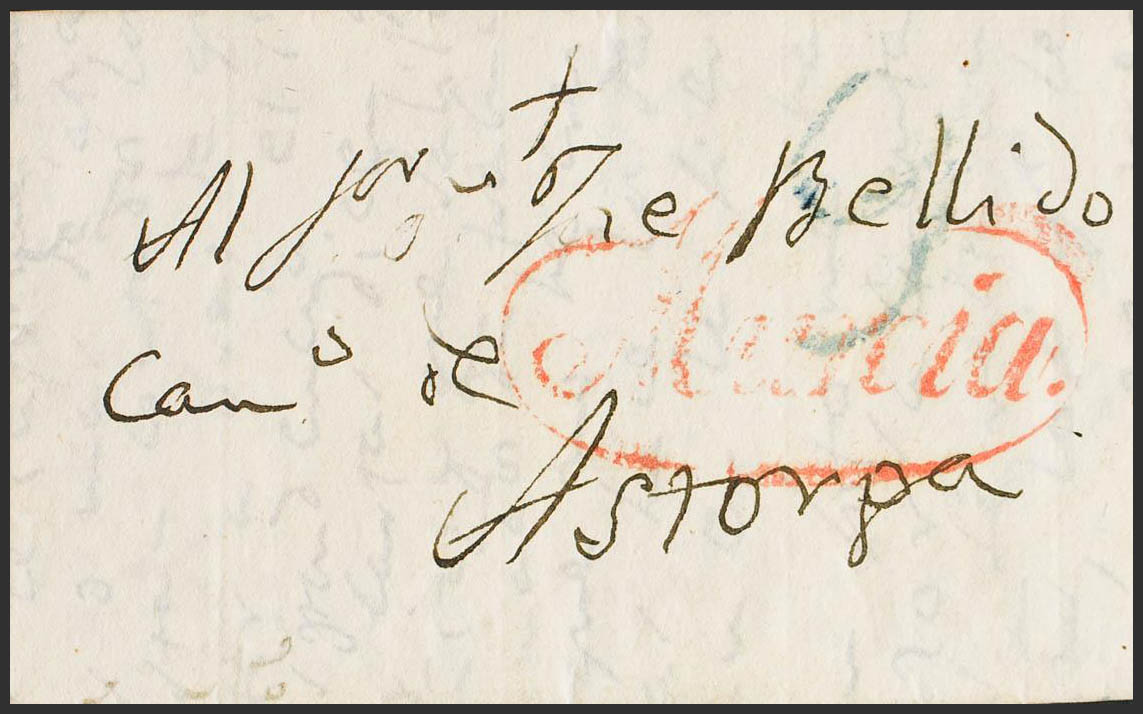 Al Sor Dn Jose Bellido
Cano de
Astorga
Murcia.